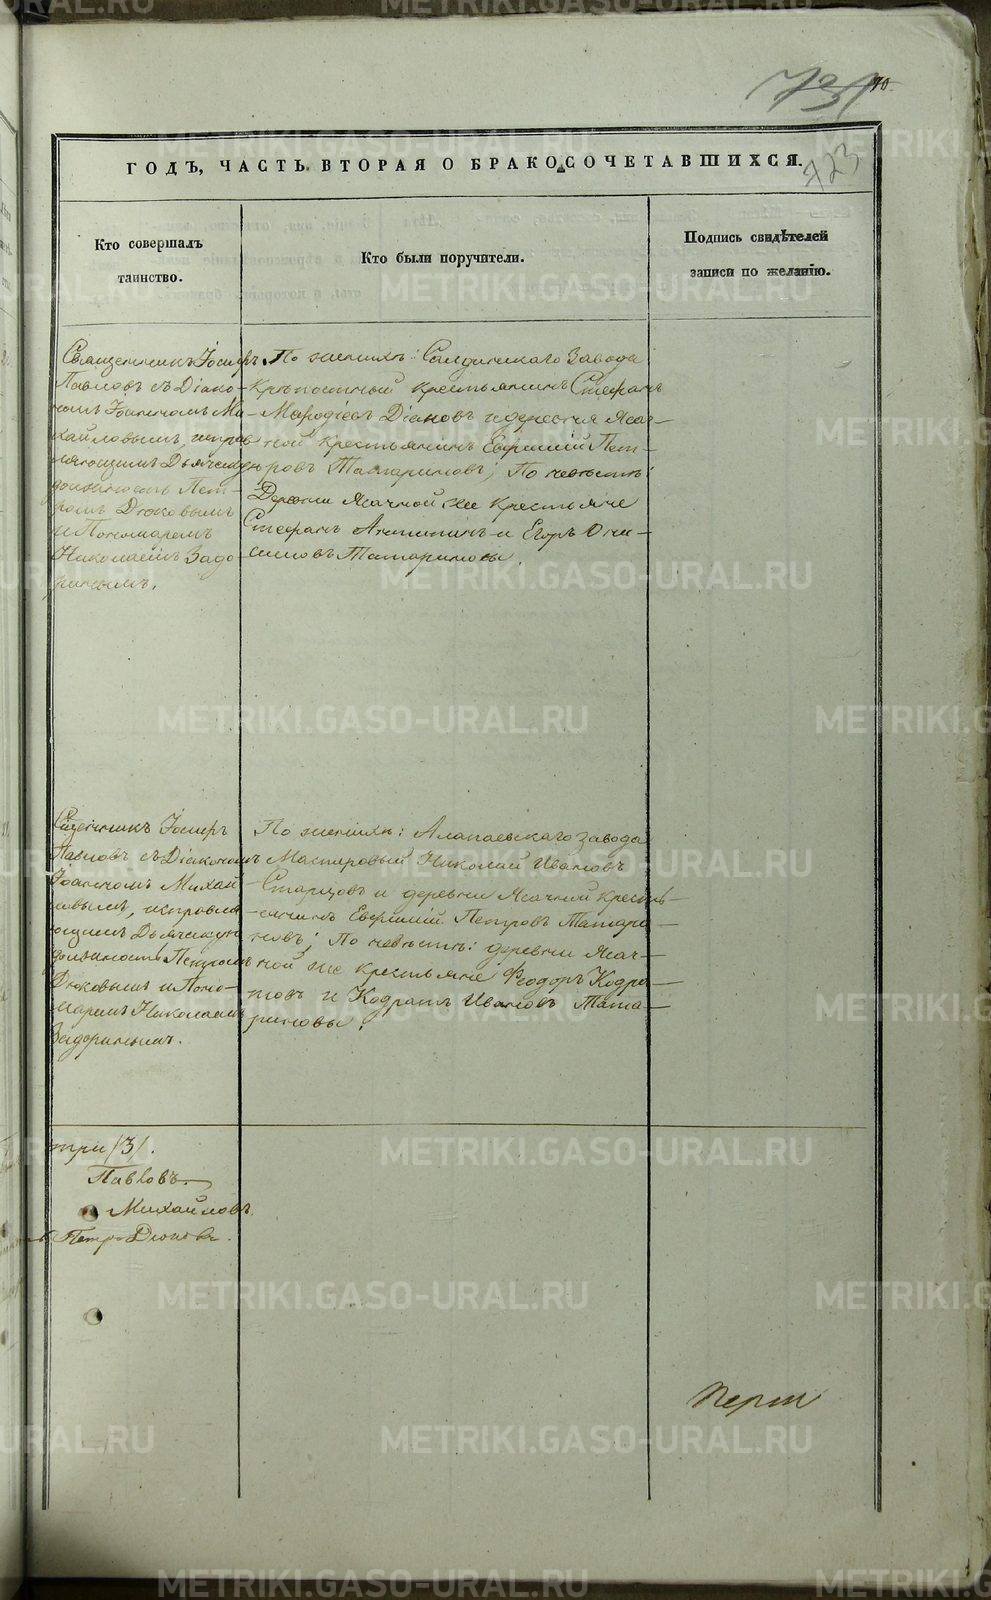 70
723
ГОДЪ, ЧАСТЬ ВТОРАЯ О БРАКОСОЧЕТАВШИХСЯ.
Кто совершалъ
таинство.
Кто были поручители.
Подпись свидѣтелей
записи по желанію.
Священникъ Іосифъ
Павловъ съ Діако-
номъ Іоанномъ Ми-
хайловымъ, исправ
ляющимъ Дьячкову
должность Пет-
ромъ Дюковымъ
и Пономаремъ
Николаемъ Задо-
ринымъ.
По женихѣ: Салдинскаго Завода
Крѣпостный крестьянинъ Стефанъ
Діаковъ и деревни Ясач-
ной крестьянинъ Евфимій Пет-
ровъ Татариновъ; По невѣстѣ:
Деревни Ясачной же крестьяне
Стефанъ Антипинъ и Егоръ Они-
симовъ Татариновы.
Сщенникъ Іосифъ
Павловъ съ Діакономъ
Іоанномъ Михай-
ловымъ, исправля
ющимъ Дьячкову
должность Петромъ
Дюковымъ и Поно-
маремъ Николаемъ
Задоринымъ.
По женихѣ: Алапаевскаго завода
Мастеровый Николай Ивановъ
Старцовъ и деревни Ясачной кресть-
янинъ Евфимій Петровъ Татари-
новъ; По невѣстѣ: деревни Ясач-
ной же крестьяне Феодоръ Кодра-
товъ и Кодратъ Ивановъ Тата-
риновы.
три /3/.
Павловъ
Михайловъ.
Петръ Дюковъ.
METRIKI.GASO-URAL.RU